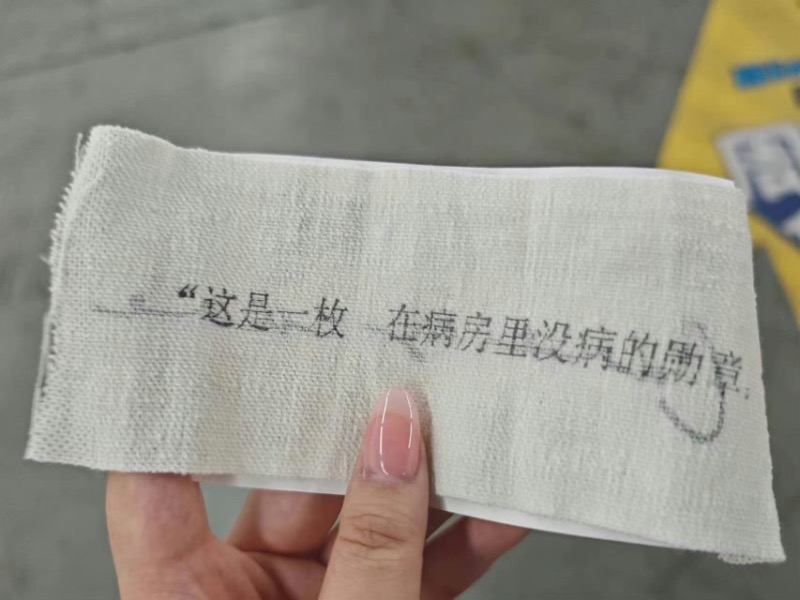 “这是一枚 在病房里没病的勋章